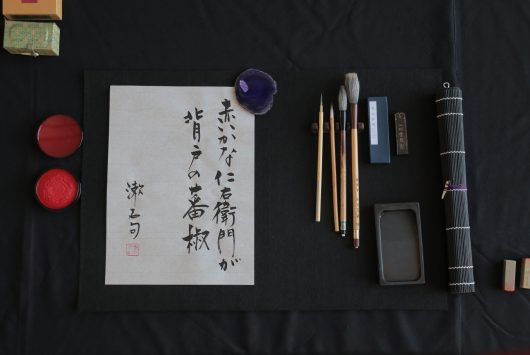 赤いかな仁右衛門が
背戸の蕃椒
漱石句